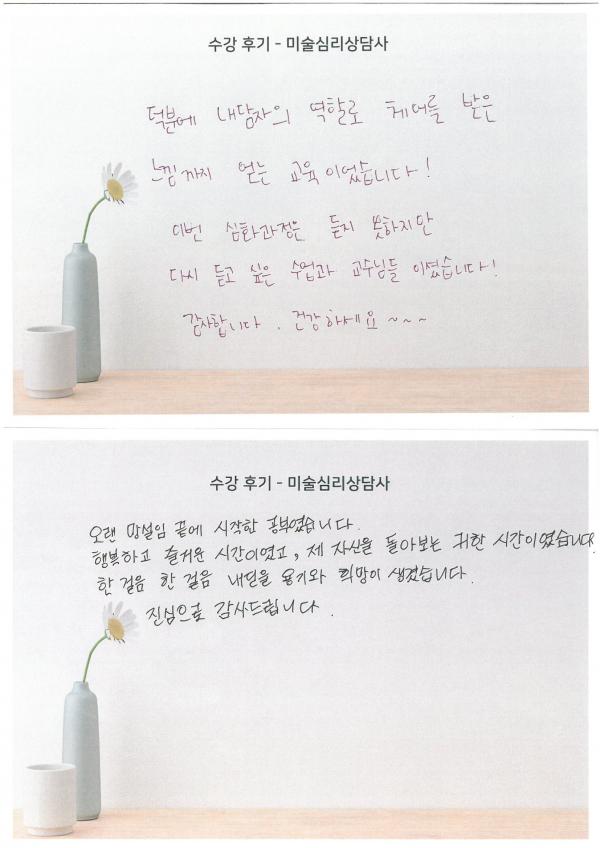 수강 후기 - 미술심리상담사
덕분에 내담자의 역할로 케어를 받은
느낌까지 얻는 교육이었습니다!
이번 심화과정은 듣지 못하지만
다시 듣고 싶은 수업과 교수님들 이셨습니다!
감사합니다. 건강하세요~~~
수강 후기 - 미술심리상담사
오랜 망설임 끝에 시작한 공부였습니다.
행복하고 즐거운 시간이였고, 제 자신을 돌아보는 귀한 시간이였습니다.
한 걸음 한 걸음 내딛을 용기와 희망이 생겼습니다.
진심으로 감사드립니다.